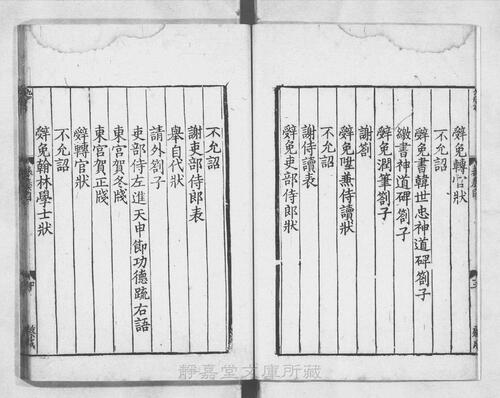 辭免轉官狀
不允詔
辭免書韓世忠神道碑劄子
繳書神道碑劄子
辭免潤筆劄子
謝劄
辭免陞兼侍讀狀
不允詔
謝侍讀表
辭免吏部侍郎狀
不允詔
謝吏部侍郎表
舉自代狀
請外劄子
吏部侍左進天申節功德疏右語
東宮賀冬牋
東宮賀正牋
辭轉官狀
不允詔
辭免翰林學士狀
靜嘉堂文庫所藏